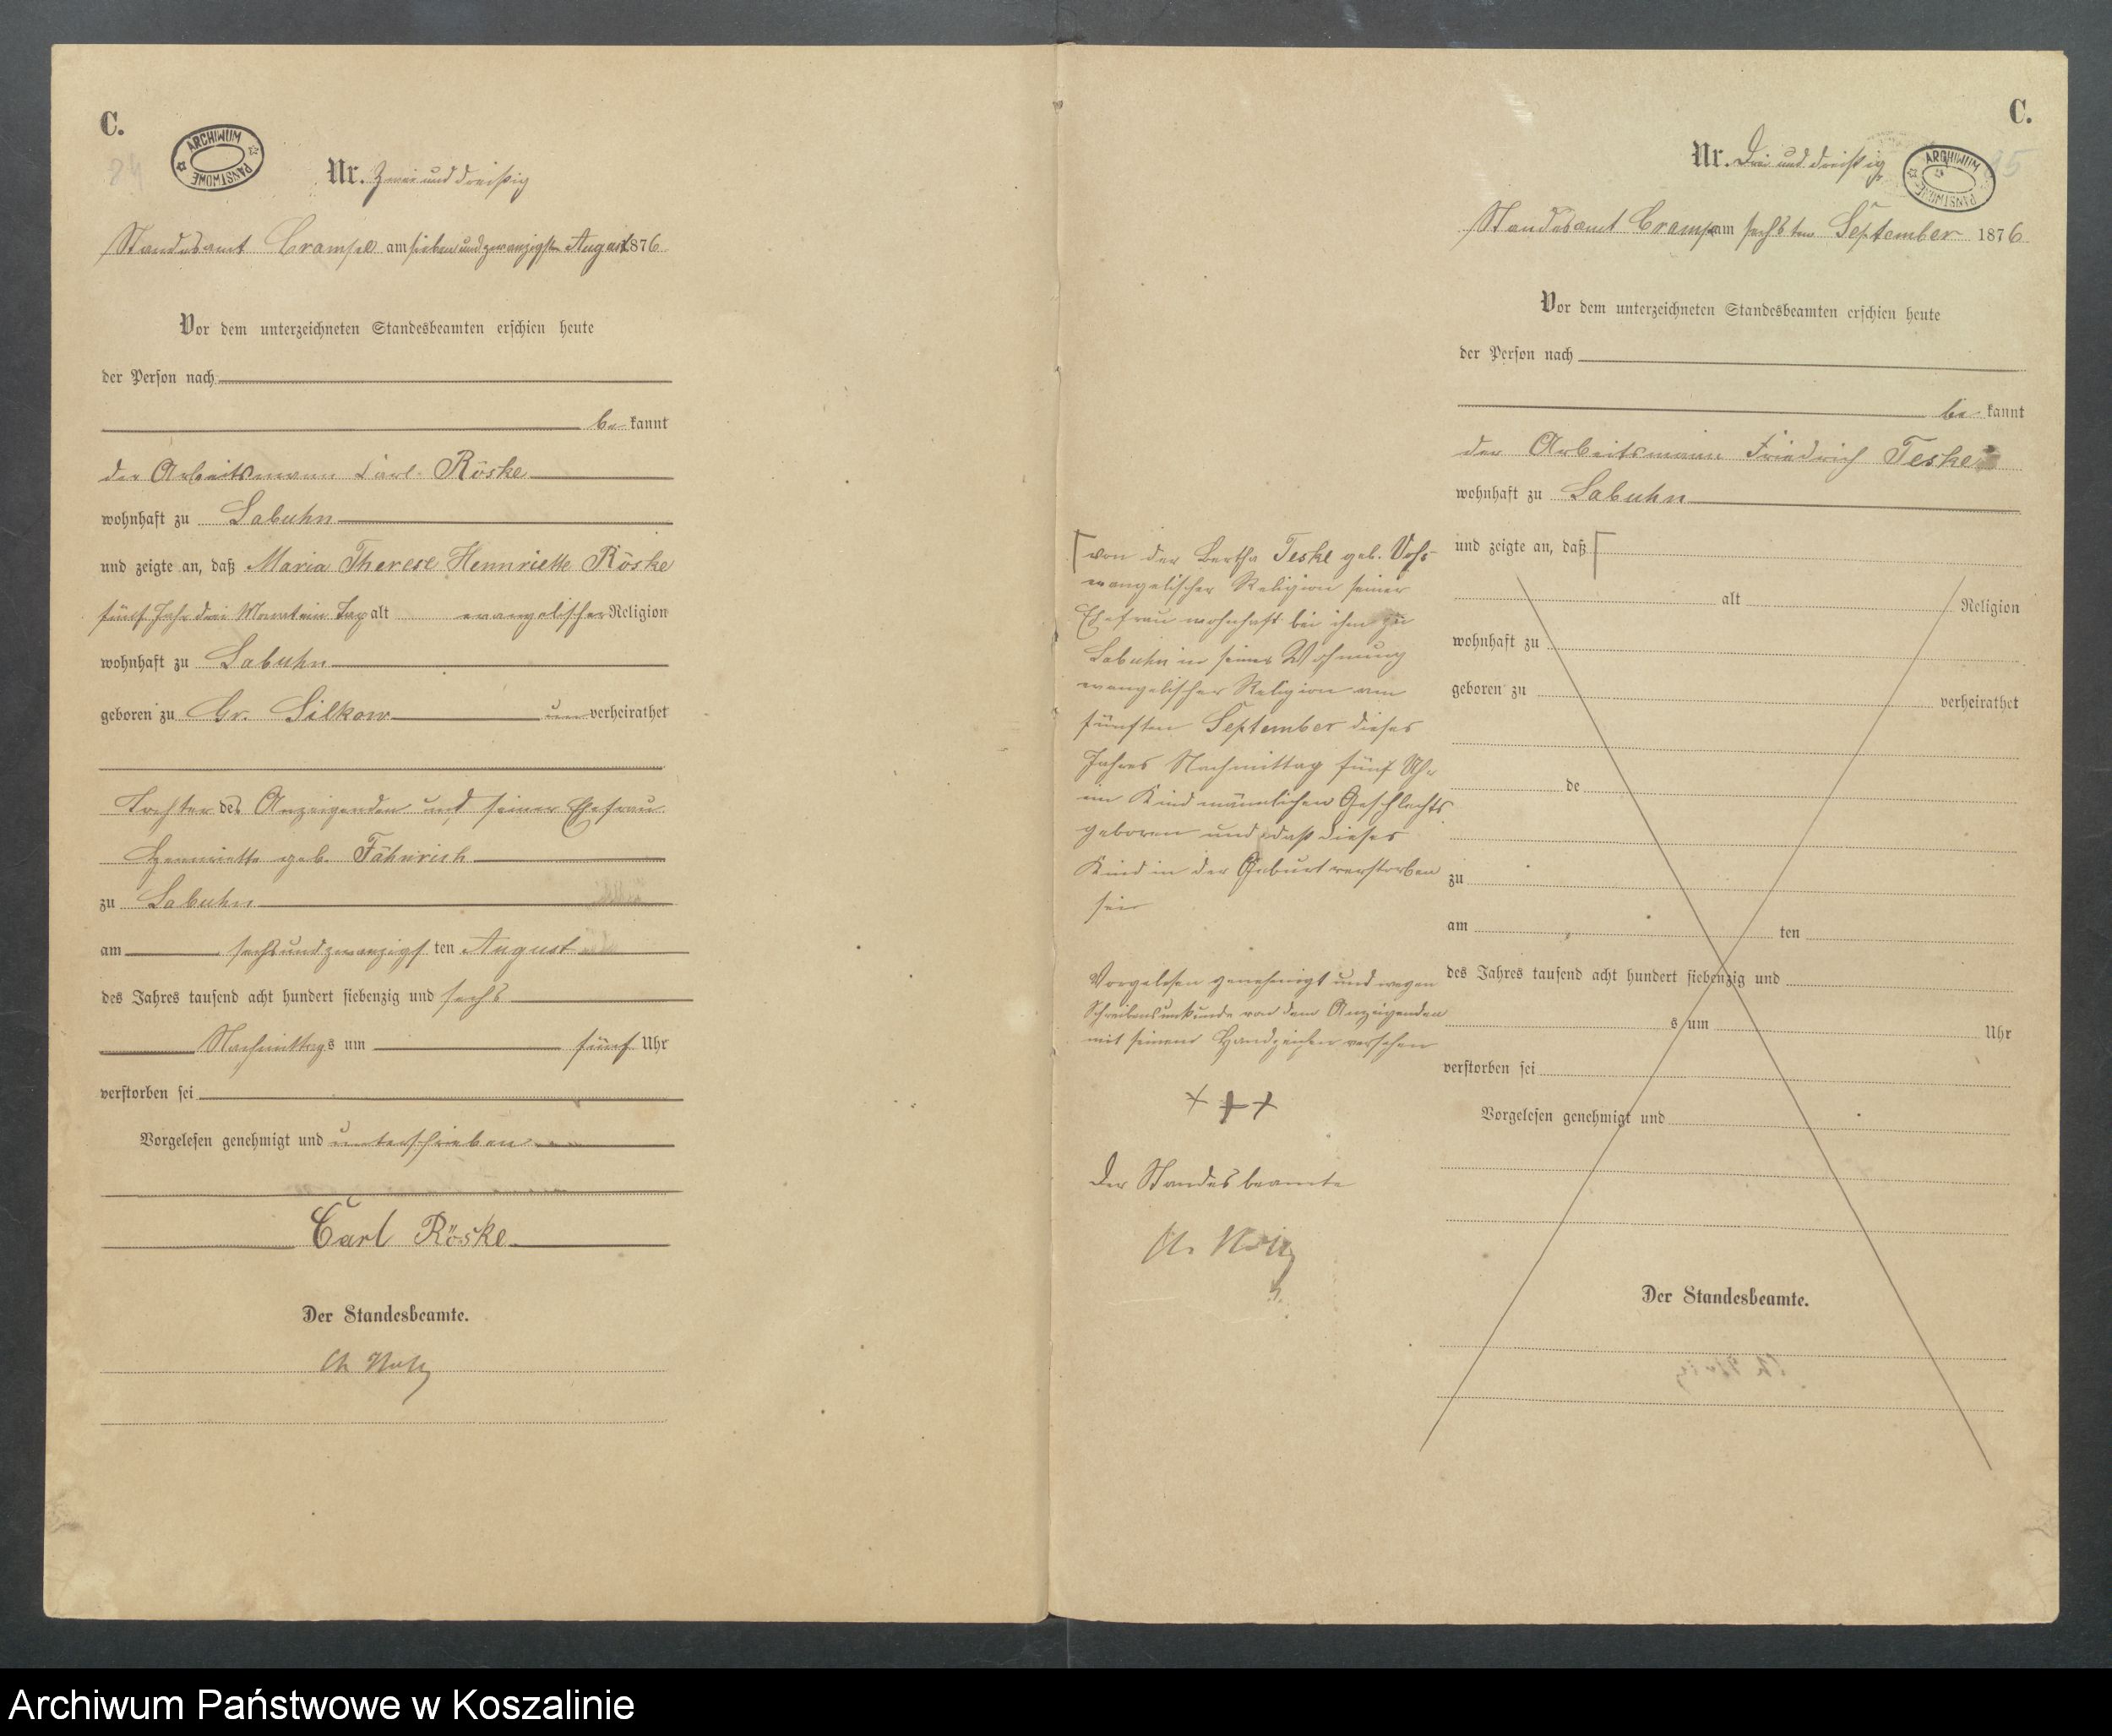 C.
ARCHIWUM PAŃSTWOWE
Nr. Zwei und dreißig
Standesamt Crampe am sieben und zwanzigsten August 1876
Vor dem unterzeichneten Standesbeamten erschien heute
der Person nach
be kannt
der Arbeitsmann Carl Röske
wohnhaft zu Labuhn
und zeigte an, daß Maria Therese Hennriette Röske
fünf Jahr drei Monat ein Tag alt evangelischer Religion
wohnhaft zu Labuhn
geboren zu Gr. Silkow un verheirathet
Tochter des Anzeigenden und seiner Ehefrau
Henriette geb. Fähnrich
zu Labuhn
am sechsundzwanzigsten August
des Jahres tausend acht hundert siebenzig und sechs
Nachmittags um fünf Uhr
verstorben sei
Vorgelesen genehmigt und unterschrieben
Carl Röske
Der Standesbeamte.
C.
ARCHIWUM PAŃSTWOWE
Nr. Drei und dreißig
Standesamt Crampe am sechsten September 1876
Vor dem unterzeichneten Standesbeamten erschien heute
der Person nach
be kannt
der Arbeitsmann Friedrich Teske
wohnhaft zu Labuhn
und zeigte an, daß
alt Religion
wohnhaft zu
geboren zu verheirathet
de
zu
am ten
des Jahres tausend acht hundert siebenzig und
s um Uhr
verstorben sei
Vorgelesen genehmigt und
Der Standesbeamte.
von der Bertha Teske geb.
evangelischer Religion seiner
Ehefrau wohnhaft bei ihm zu
Labuhn in seiner Wohnung
evangelischer Religion am
fünften September dieses
Jahres Nachmittag fünf Uhr
ein Kind männlichen Geschlechts
geboren und daß dieses
Kind in der Geburt verstorben
sei
Vorgelesen genehmigt und wegen
Schreibensunkunde von dem Anzeigenden
mit seinem Handzeichen versehen
+++
Der Standesbeamte
Archiwum Państwowe w Koszalinie